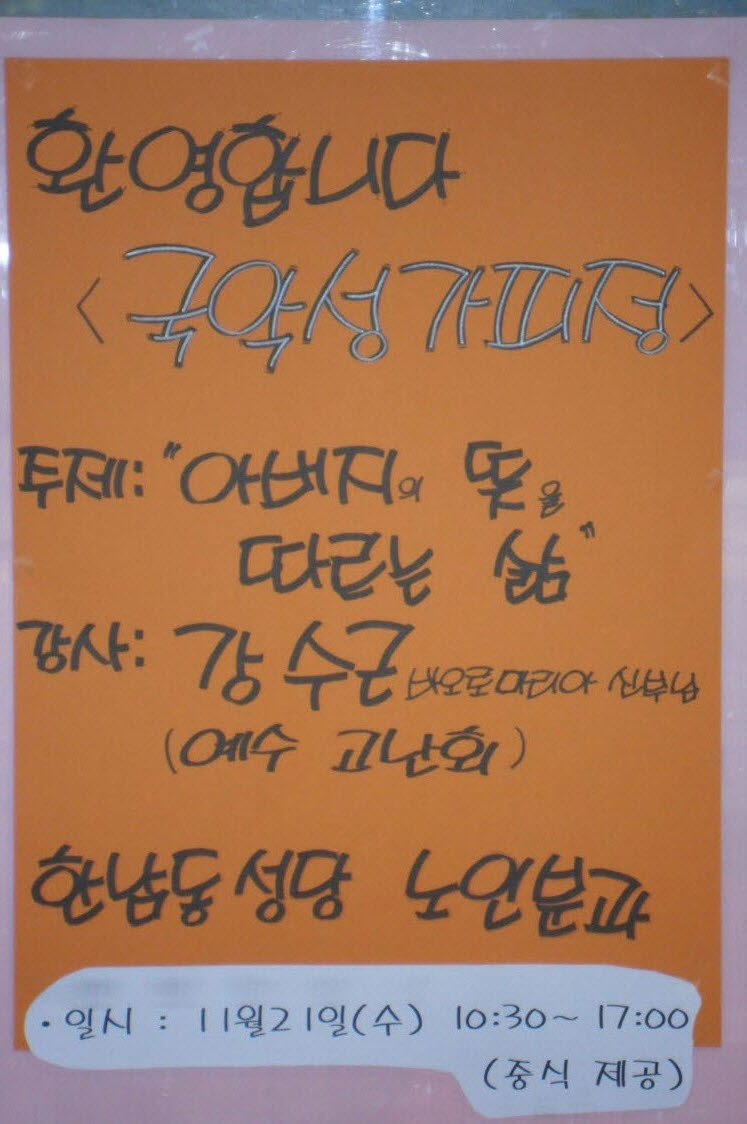 환영합니다
<국악성가피정>
주제: "아버지의 뜻을
따르는 삶"
강사: 강수근 바오로마리아 신부님
(예수 고난회)
한남동성당 노인분과
• 일시 : 11월21일(수) 10:30~ 17:00
(중식 제공)